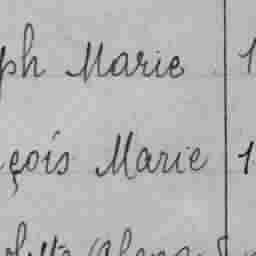 ph Marie 1
çois Marie 1